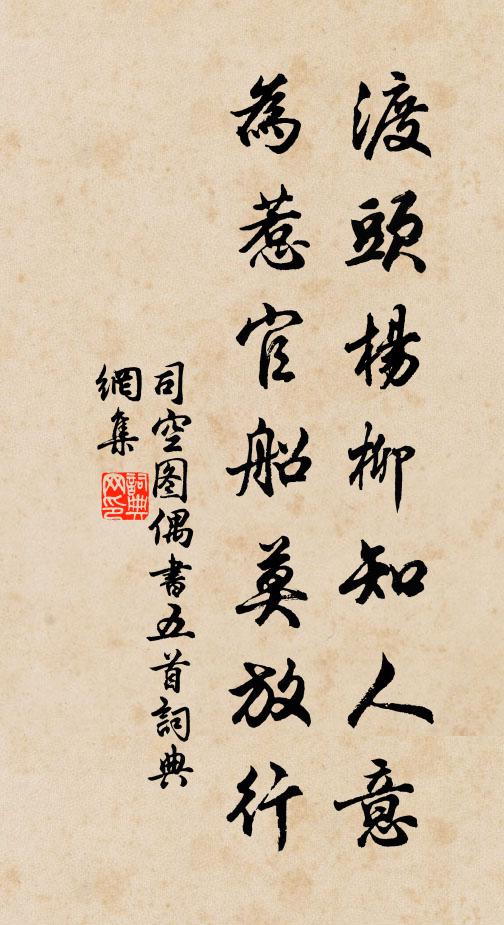 渡頭楊柳知人意
為惹官船莫放行
司空图偶書五首詞典
網集
詞典
网印